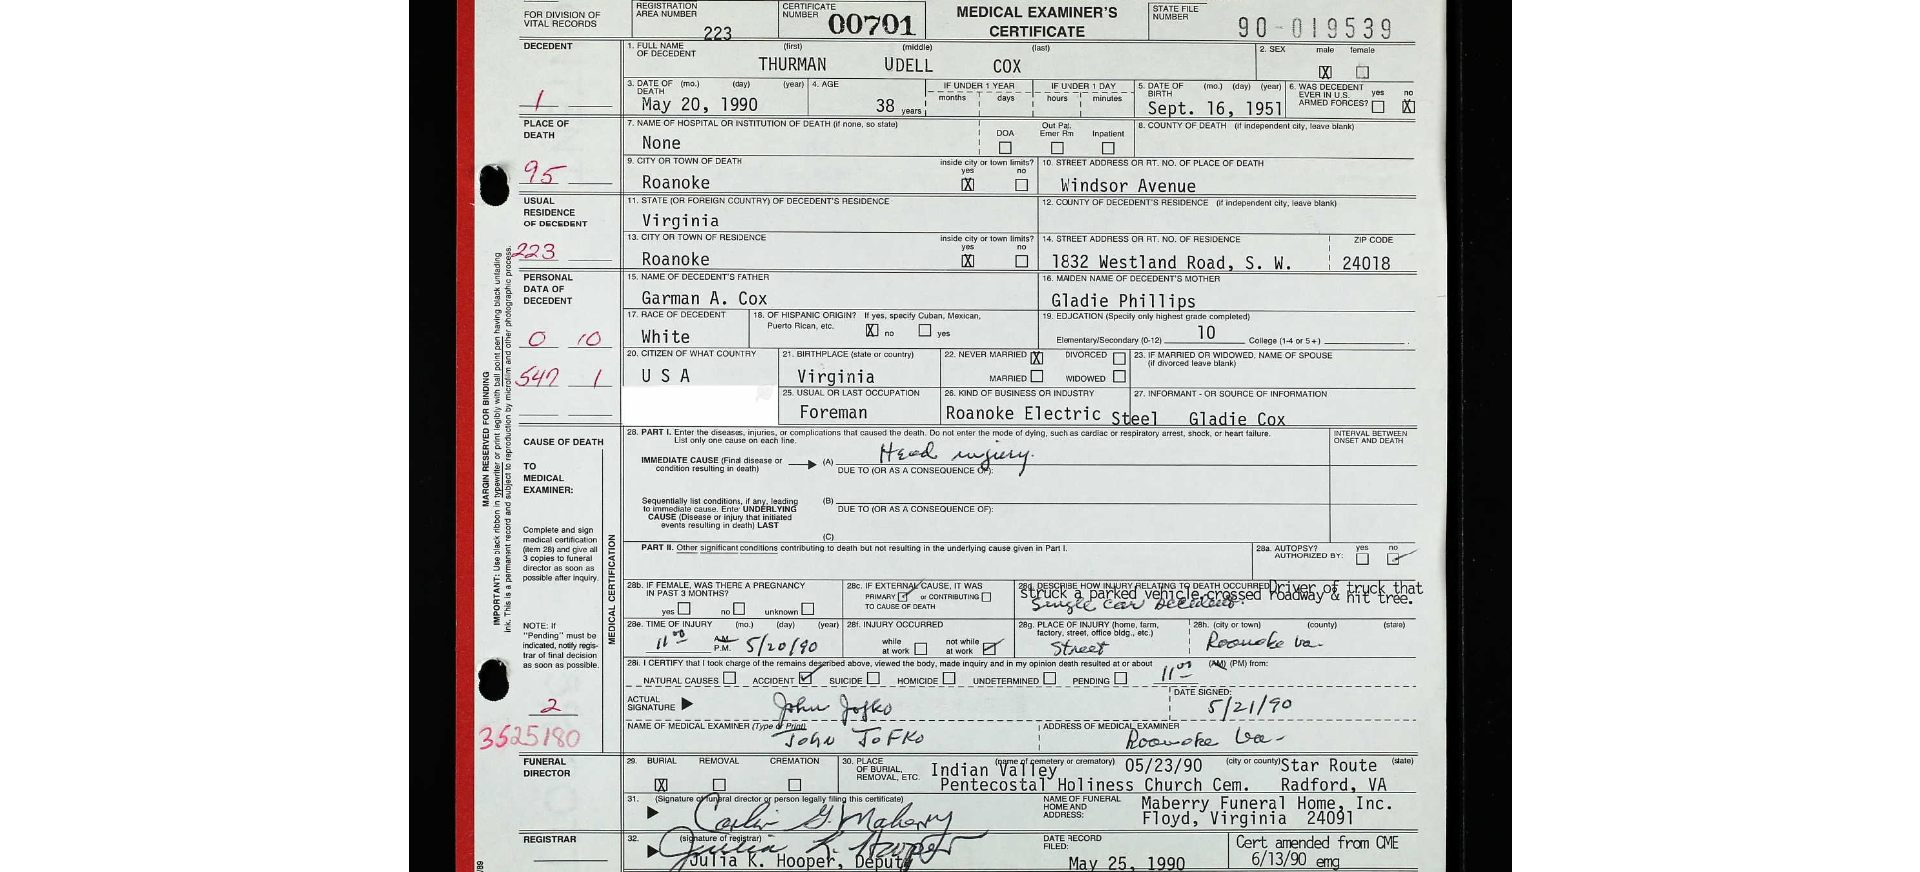 FOR DIVISION OF VITAL RECORDS
REGISTRATION AREA NUMBER 223
CERTIFICATE NUMBER 00701
MEDICAL EXAMINER'S CERTIFICATE
STATE FILE NUMBER 90-019539
DECEDENT
1. FULL NAME OF DECEDENT (first) (middle) (last)
THURMAN UDELL COX
2. SEX male female
X
3. DATE OF DEATH (mo.) (day) (year)
May 20, 1990
4. AGE
38 years
IF UNDER 1 YEAR months days
IF UNDER 1 DAY hours minutes
5. DATE OF BIRTH (mo.) (day) (year)
Sept. 16, 1951
6. WAS DECEDENT EVER IN U.S. ARMED FORCES? yes no
X
1
PLACE OF DEATH
7. NAME OF HOSPITAL OR INSTITUTION OF DEATH (if none, so state)
None
DOA Out Pat. Emer Rm Inpatient
8. COUNTY OF DEATH (if independent city, leave blank)
95
9. CITY OR TOWN OF DEATH
Roanoke
inside city or town limits? yes no
X
10. STREET ADDRESS OR RT. NO. OF PLACE OF DEATH
Windsor Avenue
USUAL RESIDENCE OF DECEDENT
11. STATE (OR FOREIGN COUNTRY) OF DECEDENT'S RESIDENCE
Virginia
12. COUNTY OF DECEDENT'S RESIDENCE (if independent city, leave blank)
223
13. CITY OR TOWN OF RESIDENCE
Roanoke
inside city or town limits? yes no
X
14. STREET ADDRESS OR RT. NO. OF RESIDENCE
1832 Westland Road, S. W.
ZIP CODE
24018
PERSONAL DATA OF DECEDENT
15. NAME OF DECEDENT'S FATHER
Garman A. Cox
16. MAIDEN NAME OF DECEDENT'S MOTHER
Gladie Phillips
17. RACE OF DECEDENT
White
18. OF HISPANIC ORIGIN? If yes, specify Cuban, Mexican, Puerto Rican, etc.
X no yes
19. EDUCATION (Specify only highest grade completed)
Elementary/Secondary (0-12) 10 College (1-4 or 5+)
0 10
20. CITIZEN OF WHAT COUNTRY
U S A
21. BIRTHPLACE (state or country)
Virginia
22. NEVER MARRIED X DIVORCED
MARRIED WIDOWED
23. IF MARRIED OR WIDOWED, NAME OF SPOUSE (if divorced leave blank)
547 1
25. USUAL OR LAST OCCUPATION
Foreman
26. KIND OF BUSINESS OR INDUSTRY
Roanoke Electric Steel
27. INFORMANT - OR SOURCE OF INFORMATION
Gladie Cox
MARGIN RESERVED FOR BINDING
IMPORTANT: Use black ribbon in typewriter or print legibly with ball point pen having black unfading
ink. This is a permanent record and subject to reproduction by microfilm and other photographic process.
CAUSE OF DEATH
TO MEDICAL EXAMINER:
Complete and sign medical certification (item 28) and give all 3 copies to funeral director as soon as possible after inquiry.
NOTE: If "Pending" must be indicated, notify registrar of final decision as soon as possible.
MEDICAL CERTIFICATION
28. PART I. Enter the diseases, injuries, or complications that caused the death. Do not enter the mode of dying, such as cardiac or respiratory arrest, shock, or heart failure.
List only one cause on each line.
INTERVAL BETWEEN ONSET AND DEATH
IMMEDIATE CAUSE (Final disease or condition resulting in death)
(A) Head injury.
DUE TO (OR AS A CONSEQUENCE OF):
Sequentially list conditions, if any, leading to immediate cause. Enter UNDERLYING CAUSE (Disease or injury that initiated events resulting in death) LAST
(B)
DUE TO (OR AS A CONSEQUENCE OF):
(C)
PART II. Other significant conditions contributing to death but not resulting in the underlying cause given in Part I.
28a. AUTOPSY? AUTHORIZED BY: yes no
28b. IF FEMALE, WAS THERE A PREGNANCY IN PAST 3 MONTHS?
yes no unknown
28c. IF EXTERNAL CAUSE, IT WAS
PRIMARY or CONTRIBUTING
TO CAUSE OF DEATH
28d. DESCRIBE HOW INJURY RELATING TO DEATH OCCURRED
Driver of truck that
struck a parked vehicle, crossed roadway & hit tree.
Single car accident.
28e. TIME OF INJURY (mo.) (day) (year)
11 00 A.M. P.M. 5/20/90
28f. INJURY OCCURRED
while at work not while at work
28g. PLACE OF INJURY (home, farm, factory, street, office bldg., etc.)
Street
28h. (city or town) (county) (state)
Roanoke Va-
28i. I CERTIFY that I took charge of the remains described above, viewed the body, made inquiry and in my opinion death resulted at or about
11 00 (AM) (PM) from:
NATURAL CAUSES ACCIDENT SUICIDE HOMICIDE UNDETERMINED PENDING
ACTUAL SIGNATURE
John Jofko
DATE SIGNED:
5/21/90
2
NAME OF MEDICAL EXAMINER (Type or Print)
John JoFKo
ADDRESS OF MEDICAL EXAMINER
Roanoke Va-
3525180
FUNERAL DIRECTOR
29. BURIAL REMOVAL CREMATION
X
30. PLACE OF BURIAL, REMOVAL, ETC.
(name of cemetery or crematory) (city or county) (state)
Indian Valley 05/23/90 Star Route
Pentecostal Holiness Church Cem. Radford, VA
31. (Signature of funeral director or person legally filing this certificate)
Carlin G. Maberry
NAME OF FUNERAL HOME AND ADDRESS:
Maberry Funeral Home, Inc.
Floyd, Virginia 24091
REGISTRAR
32. (signature of registrar)
Julia K. Hooper
Julia K. Hooper, Deputy
DATE RECORD FILED:
May 25, 1990
Cert amended from CME
6/13/90 emg
/89